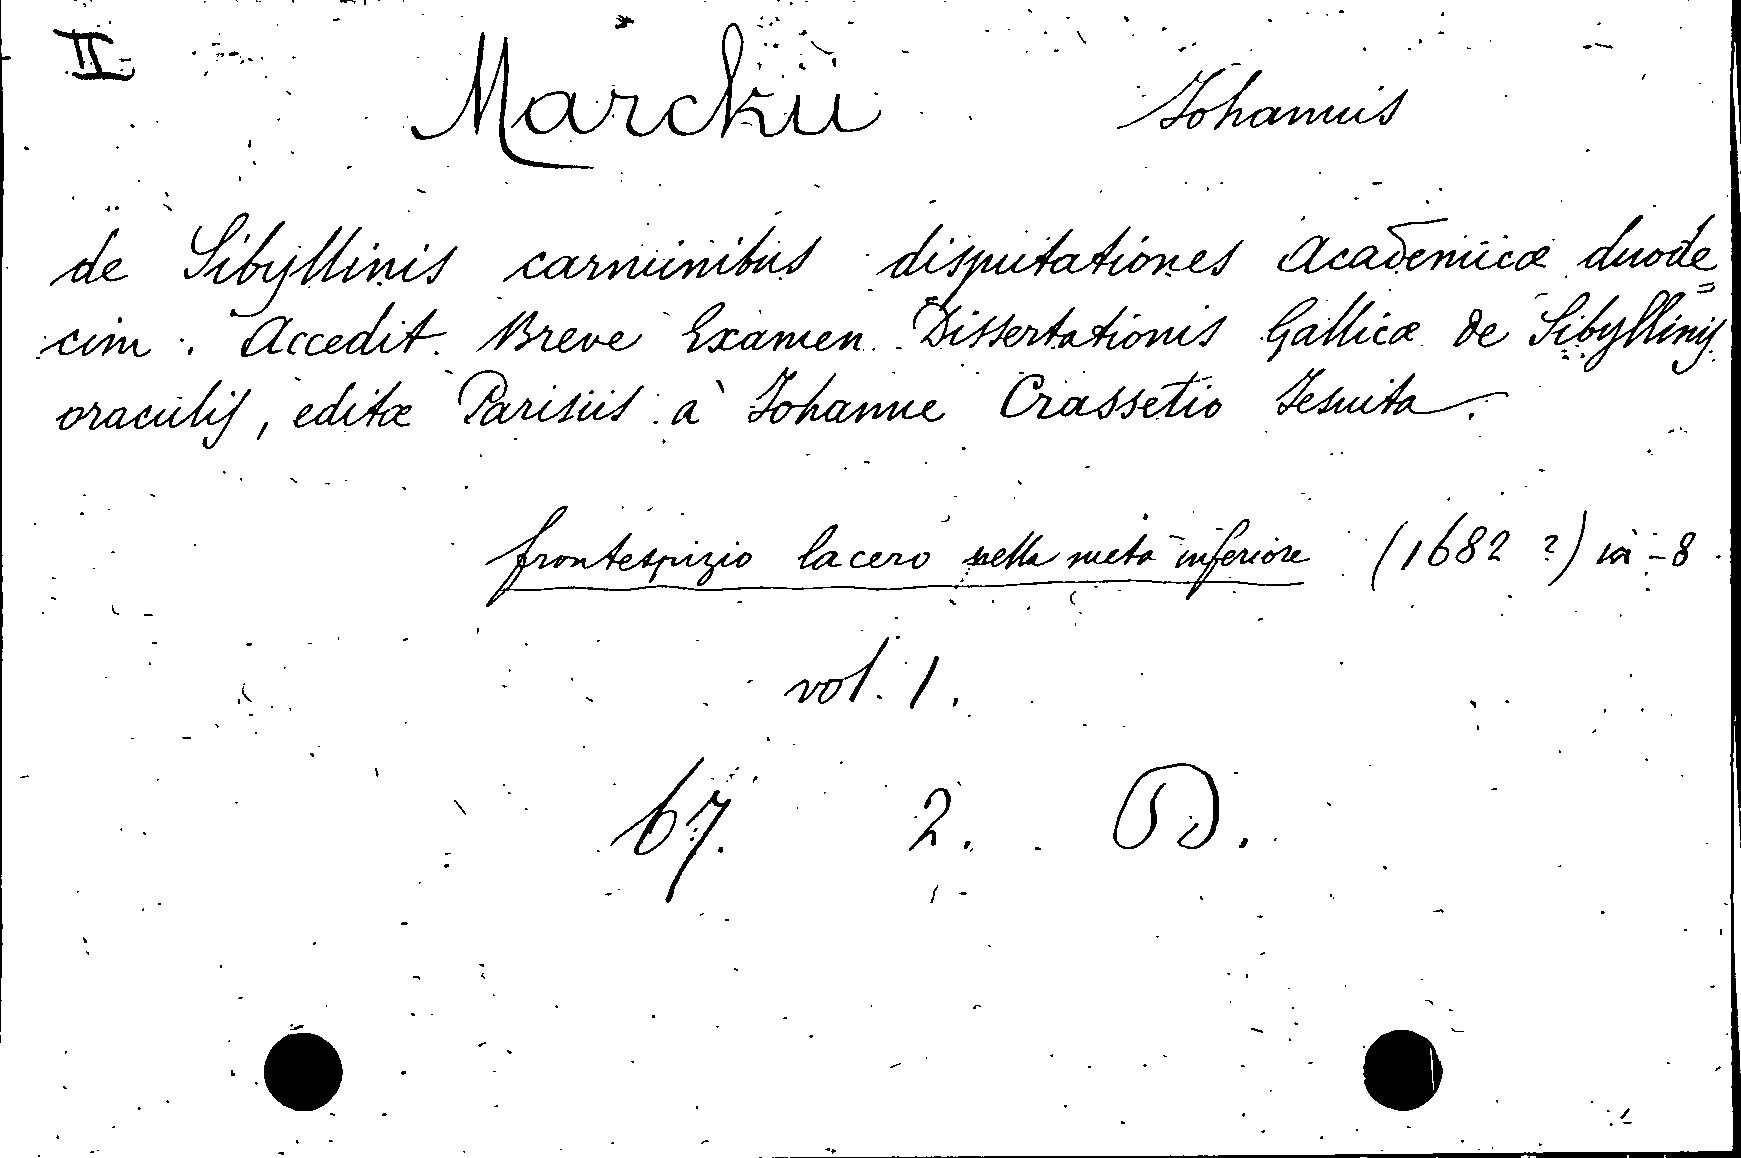 II
Marckii Johannis
de Sibyllinis carminibus disputationes Academicæ duode=
cim. Accedit Breve Examen Dissertationis Gallicæ de Sibyllinis
oraculis, editæ Parisiis à Johanne Crassetio Jesuita.
frontespizio lacero nella metà inferiore (1682 ?) in-8
vol. 1.
67. 2. D.